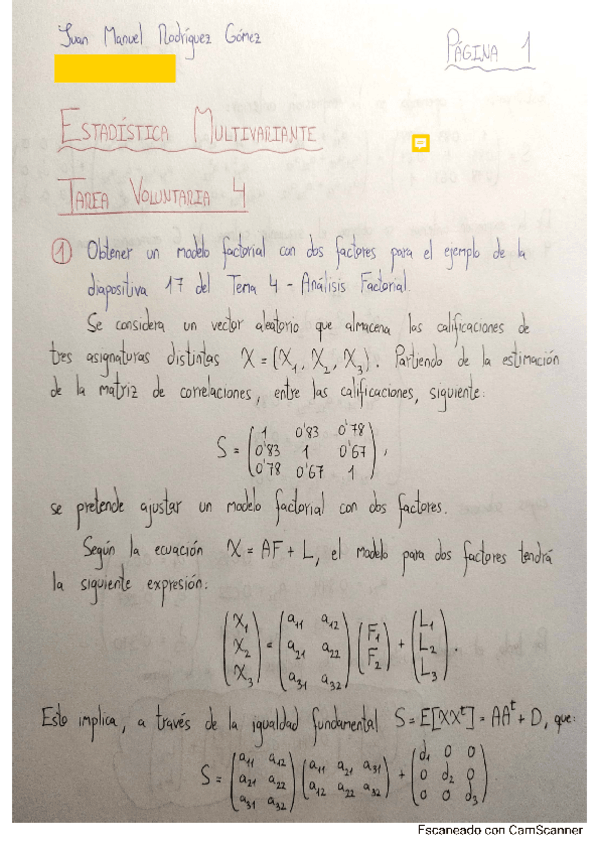 Juan Manuel Rodríguez Gómez
PÁGINA 1
ESTADÍSTICA MULTIVARIANTE
TAREA VOLUNTARIA 4
① Obtener un modelo factorial con dos factores para el ejemplo de la
diapositiva 17 del Tema 4 - Análisis Factorial.
Se considera un vector aleatorio que almacena las calificaciones de
tres asignaturas distintas X = (X₁, X₂, X₃). Partiendo de la estimación
de la matriz de correlaciones, entre las calificaciones, siguiente:
S = ( 1 0'83 0'78
0'83 1 0'67
0'78 0'67 1 ),
se pretende ajustar un modelo factorial con dos factores.
Según la ecuación X = AF + L, el modelo para dos factores tendrá
la siguiente expresión:
(X₁ X₂ X₃) = (a₁₁ a₁₂ a₂₁ a₂₂ a₃₁ a₃₂) (F₁ F₂) + (L₁ L₂ L₃).
Esto implica, a través de la igualdad fundamental S = E[XXᵗ] = AAᵗ + D, que:
S = (a₁₁ a₁₂ a₂₁ a₂₂ a₃₁ a₃₂) (a₁₁ a₂₁ a₃₁ a₁₂ a₂₂ a₃₂) + (d₁ 0 0 0 d₂ 0 0 0 d₃).
Escaneado con CamScanner